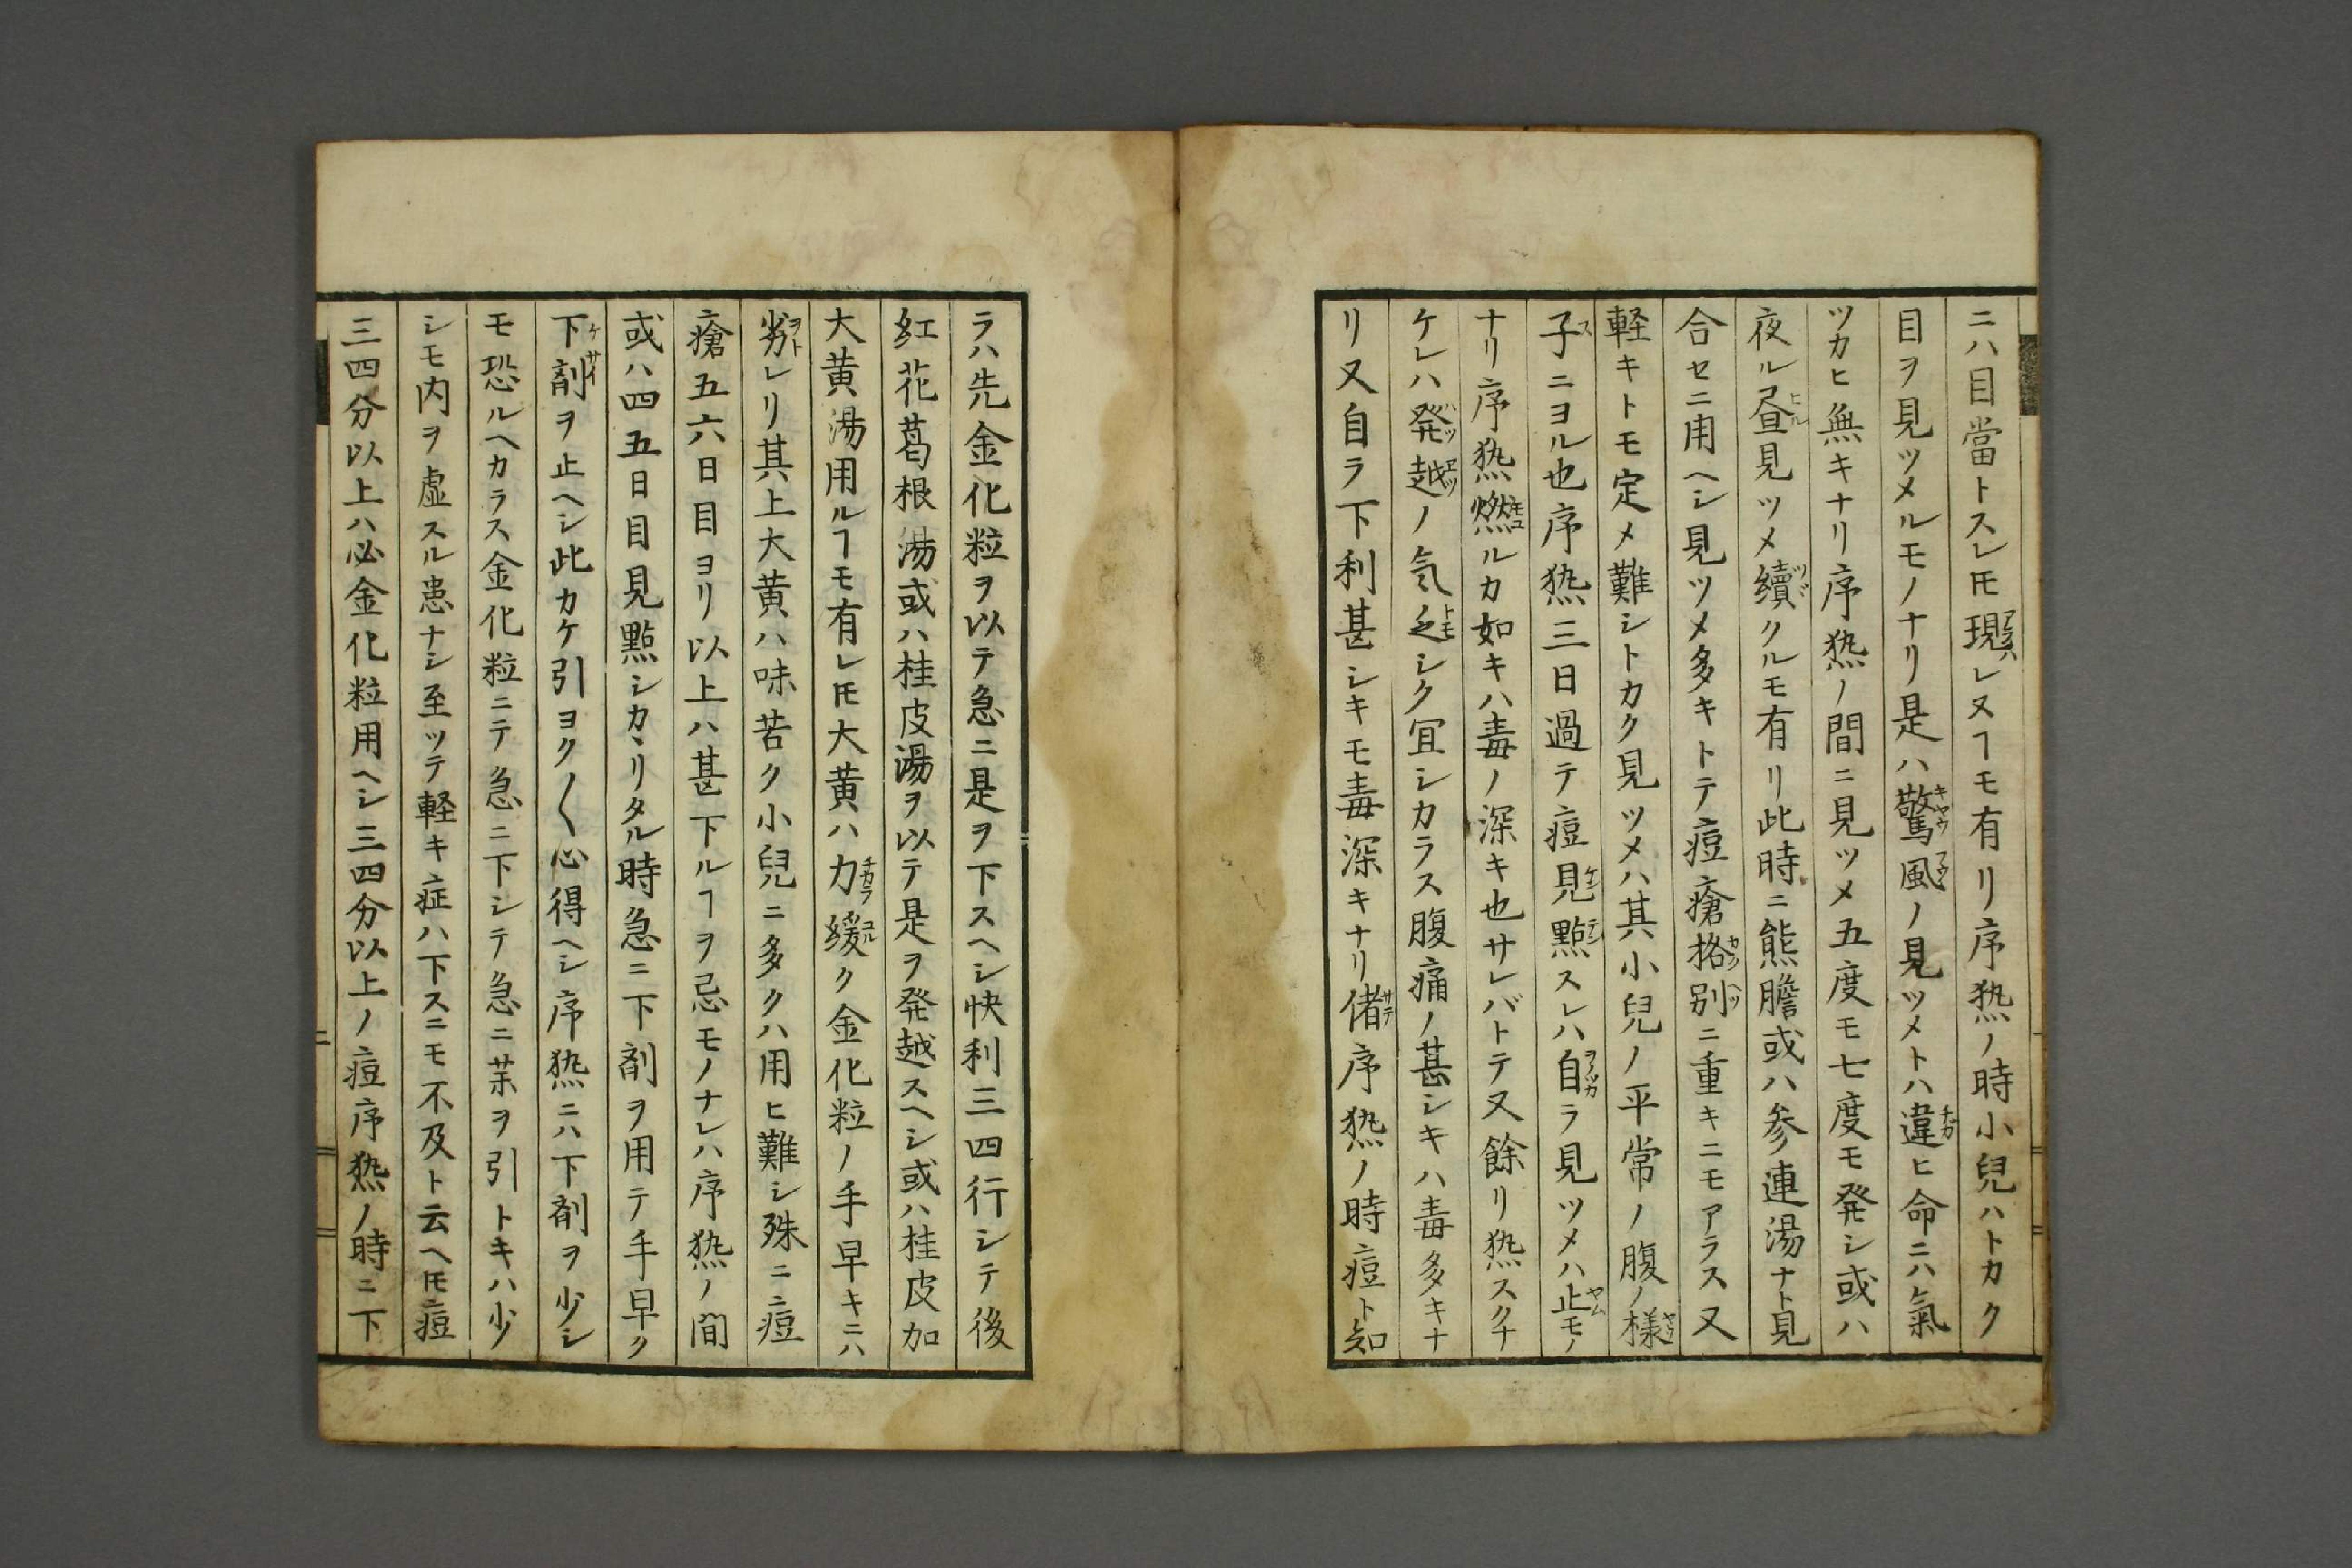 ニハ目當トスレ𪜈現ハレヌヿモ有リ序𤍠ノ時小兒ハトカク
目ヲ見ツメルモノナリ是ハ驚風ノ見ツメトハ違ヒ命ニハ氣
ツカヒ無キナリ序𤍠ノ間ニ見ツメ五度モ七度モ発シ或ハ
夜ル昼見ツメ續クルモ有リ此時ニ熊膽或ハ参連湯ナト見
合セニ用ヘシ見ツメ多キトテ痘瘡格別ニ重キニモアラス又
軽キトモ定メ難シトカク見ツメハ其小兒ノ平常ノ腹ノ様
子ニヨル也序𤍠三日過テ痘見㸃スレハ自ラ見ツメハ止モノ
ナリ序𤍠燃ルカ如キハ毒ノ深キ也サレバトテ又餘リ𤍠スクナ
ケレハ発越ノ気乏シク冝シカラス腹痛ノ甚シキハ毒多キナ
リ又自ラ下利甚シキモ毒深キナリ偖序𤍠ノ時痘ト知
ラハ先金化粒ヲ以テ急ニ是ヲ下スヘシ快利三四行シテ後
紅花葛根湯或ハ桂皮湯ヲ以テ是ヲ発越スヘシ或ハ桂皮加
大黄湯用ルヿモ有レ𪜈大黄ハ力緩ク金化粒ノ手早キニハ
劣レリ其上大黄ハ味苦ク小兒ニ多クハ用ヒ難シ殊ニ痘
瘡五六日目ヨリ以上ハ甚下ルヿヲ忌モノナレハ序𤍠ノ間
或ハ四五日目見點シカヽリタル時急ニ下剤ヲ用テ手早ク
下剤ヲ止ヘシ此カケ引ヨク〱心得ヘシ序𤍠ニハ下剤ヲ少シ
モ恐ルヘカラス金化粒ニテ急ニ下シテ急ニ茉ヲ引トキハ少
シモ内ヲ虚スル患ナシ至ッテ軽キ症ハ下スニモ不及ト云ヘ𪜈痘
三四分以上ハ必金化粒用ヘシ三四分以上ノ痘序𤍠ノ時ニ下